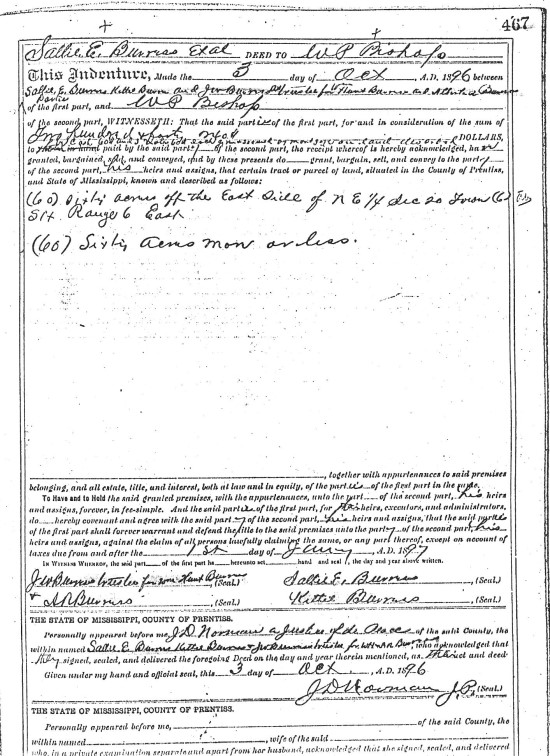 467
Sallie E. Burress Etal DEED TO W P Bishop
This Indenture, Made the 3 day of Oct, A.D. 1896 between
Sallie, E. Burress Kittie Burress and J W Burress Trustee for Hunt Burress and
of the first part, and W P Bishop
of the second part, WITNESSETH: That the said parties of the first part, for and in consideration of the sum of
DOLLARS,
to in hand paid by the said party of the second part, the receipt whereof is hereby acknowledged, ha
granted, bargained, sold, and conveyed, and by these presents do grant, bargain, sell, and convey to the party
of the second part, his heirs and assigns, that certain tract or parcel of land, situated in the County of Prentiss,
and State of Mississippi, known and described as follows:
(60) Sixty acres off the East Side of N E 1/4 Sec 20 Town (6)
South Range 6 East
(60) Sixty acres more or less.
, together with appurtenances to said premises
belonging, and all estate, title, and interest, both at law and in equity, of the parties of the first part in the same.
To Have and to Hold the said granted premises, with the appurtenances, unto the part of the second part, his heirs
and assigns, forever, in fee-simple. And the said parties of the first part, for heirs, executors, and administrators,
do hereby covenant and agree with the said party of the second part, his heirs and assigns, that the said parties
of the first part shall forever warrant and defend the title to the said premises unto the party of the second part, his
heirs and assigns, against the claim of all persons lawfully claiming the same, or any part thereof, except on account of
taxes due from and after the 1st day of Jany, A.D. 1897
In Witness Whereof, the said part of the first part ha hereunto set hand and seal, the day and year above written.
J W Burress trustee for Hunt Burress (Seal.) Sallie E, Burress (Seal.)
+ A R Burress (Seal.) Kittie Burress (Seal.)
THE STATE OF MISSISSIPPI, COUNTY OF PRENTISS.
Personally appeared before me, J. D. Norman a Justice of de Peace of the said County, the
within named Sallie E, Burress Kittie Burress & J W Burress trustee for who acknowledged that
they signed, sealed, and delivered the foregoing Deed on the day and year therein mentioned, as their act and deed.
Given under my hand and official seal, this 3 day of Oct, A.D. 1896
J D Norman J.P. (Seal.)
THE STATE OF MISSISSIPPI, COUNTY OF PRENTISS.
Personally appeared before me, of the said County, the
within named , wife of the said
who, in a private examination separate and apart from her husband, acknowledged that she signed, sealed, and delivered